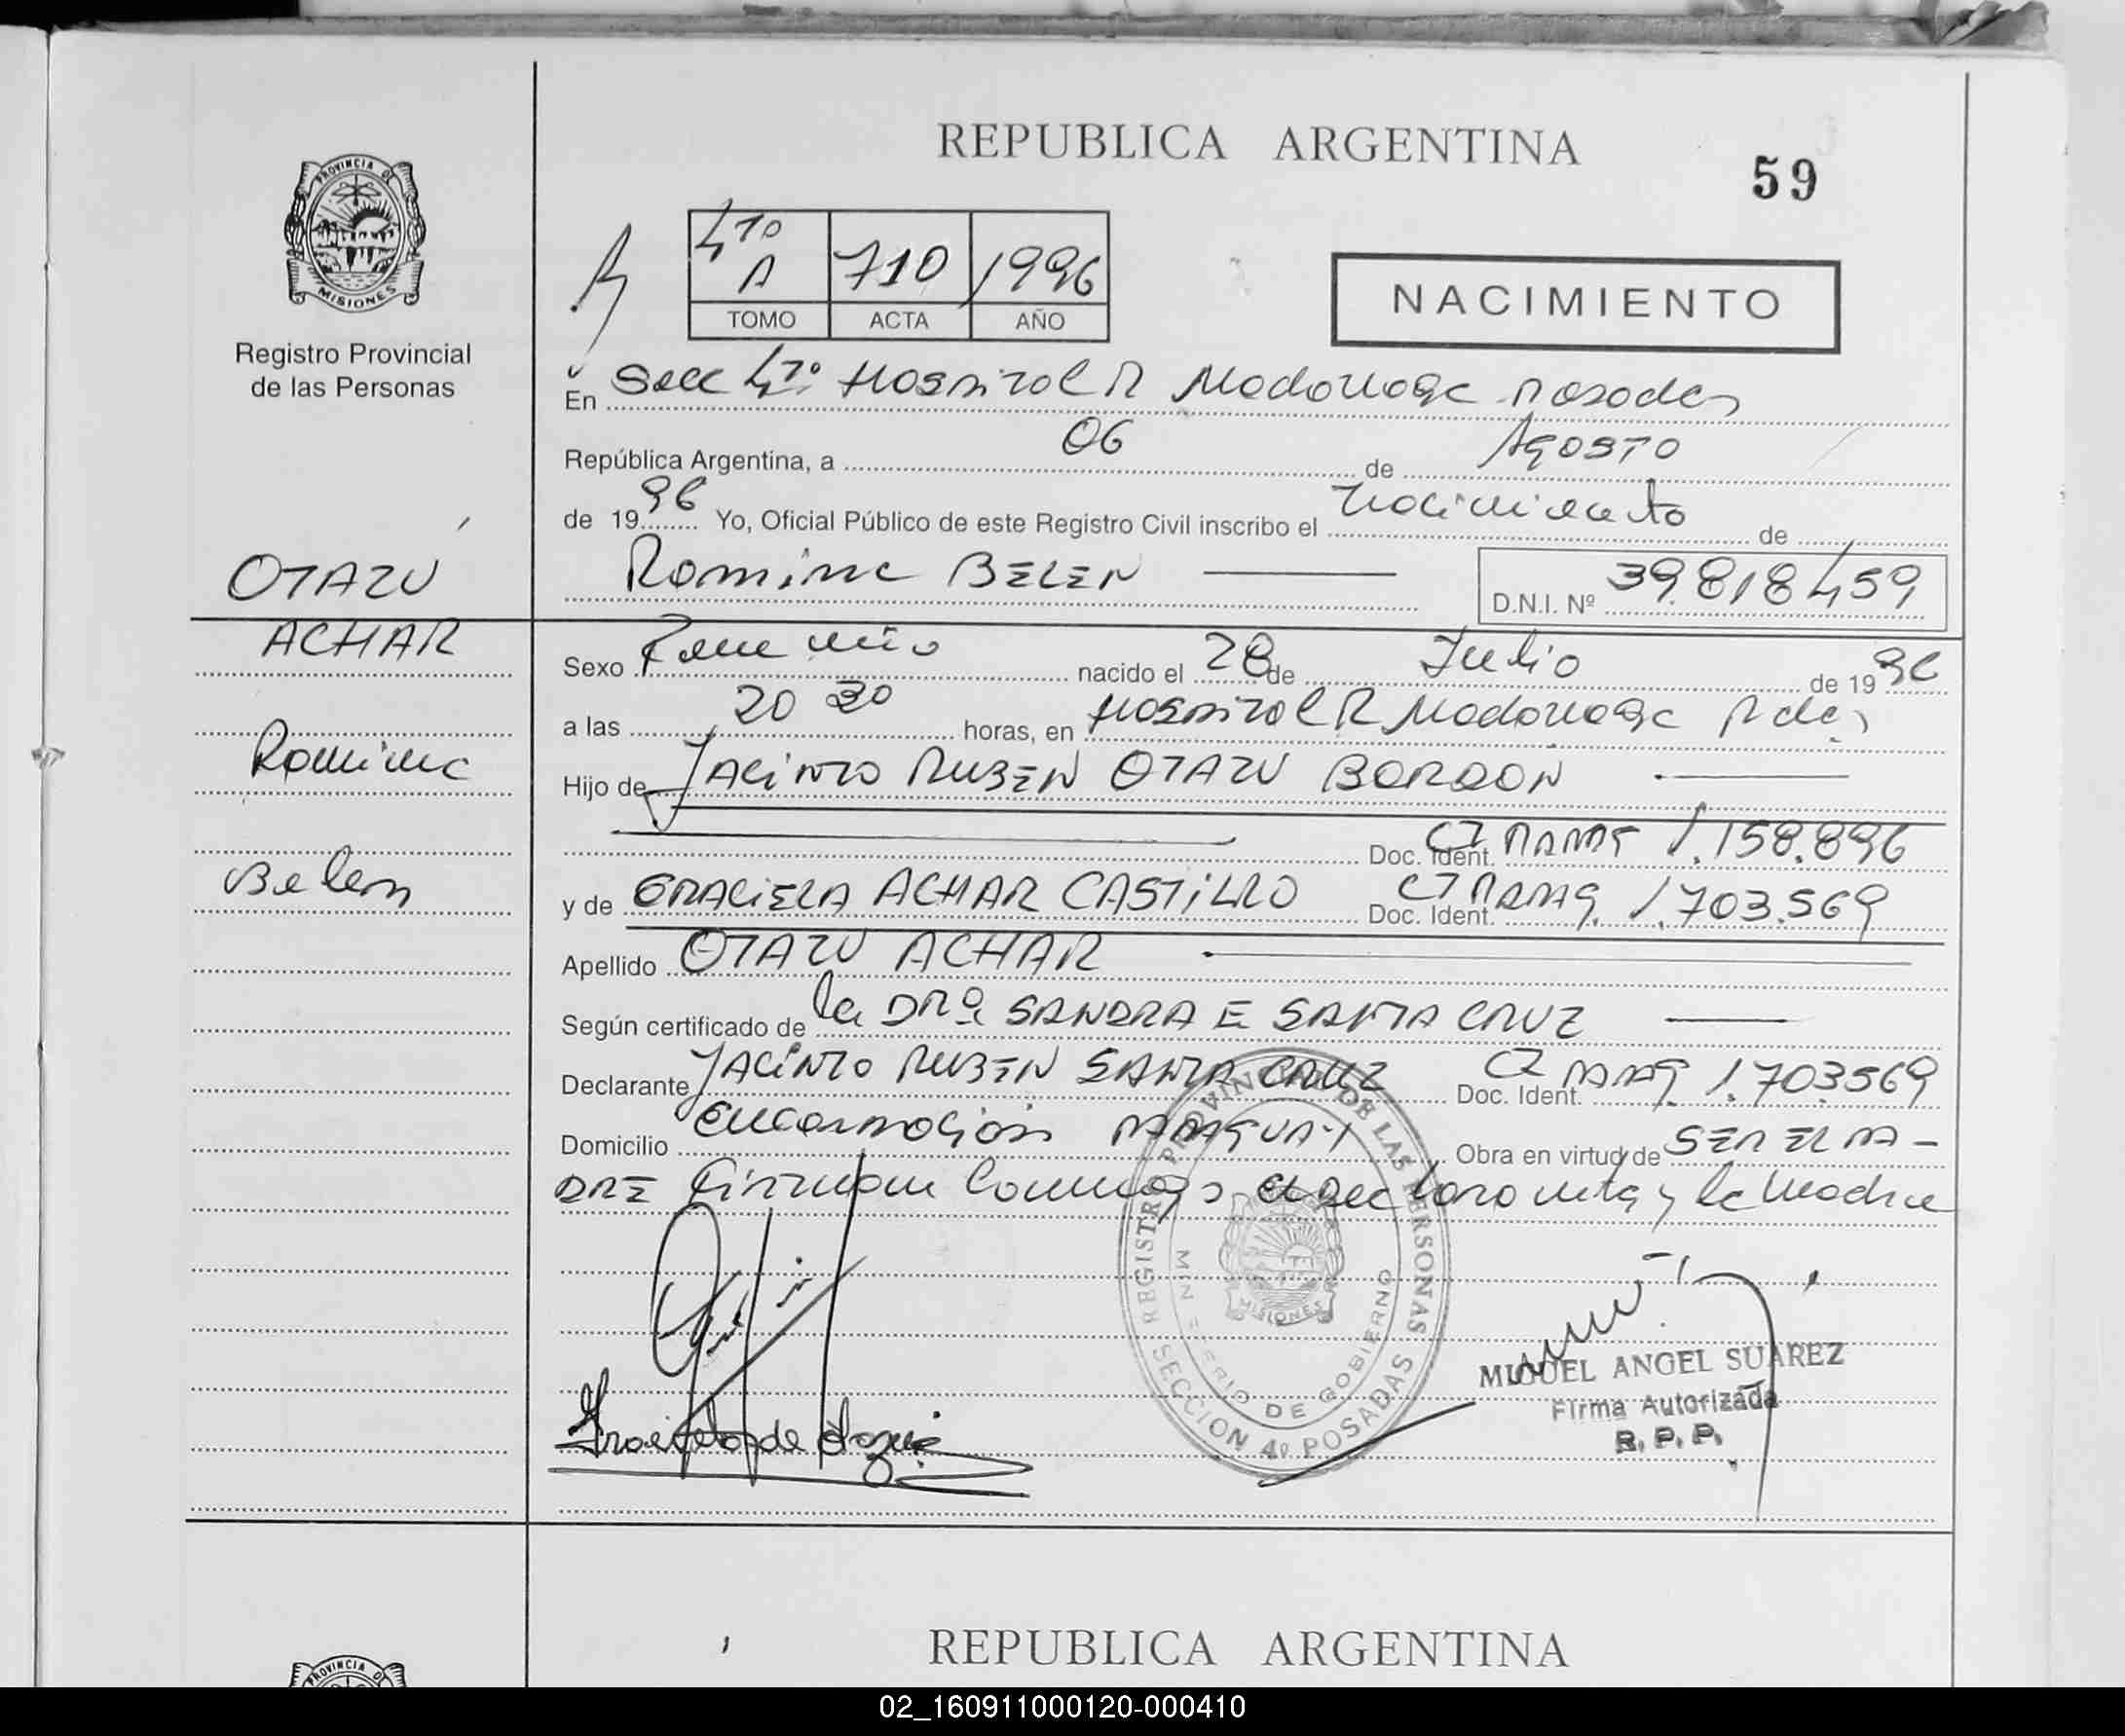 REPUBLICA ARGENTINA
59
PROVINCIA DE
MISIONES
Registro Provincial
de las Personas
4to A 710 1996
TOMO ACTA AÑO
NACIMIENTO
En Secc 4to Hospital R Madariaga Posadas
República Argentina, a 06 de Agosto
de 1996 Yo, Oficial Público de este Registro Civil inscribo el nacimiento de
OTAZU
Romina BELEN D.N.I. Nº 39.818.459
ACHAR
Sexo Femenino nacido el 28 de Julio de 1996
a las 20 30 horas, en Hospital R Madariaga Pdas
Romina
Hijo de JACINTO RUBEN OTAZU BORDON
Doc. Ident. CI PARAG 1.158.896
Belen
y de GRACIELA ACHAR CASTILLO Doc. Ident. CI PARAG. 1.703.569
Apellido OTAZU ACHAR
Según certificado de la DRa SANDRA E SANTA CRUZ
Declarante JACINTO RUBEN SANTA CRUZ Doc. Ident. CI PARAG 1.703569
Domicilio Encarnación PARAGUAY Obra en virtud de SER EL PA-
DRE Firman conmigo el declarante y la Madre
REGISTRO PROVINCIAL DE LAS PERSONAS
MINISTERIO DE GOBIERNO
MISIONES
SECCION 4º POSADAS
MIGUEL ANGEL SUAREZ
Firma Autorizada
R. P. P.
REPUBLICA ARGENTINA
PROVINCIA DE
02_160911000120-000410